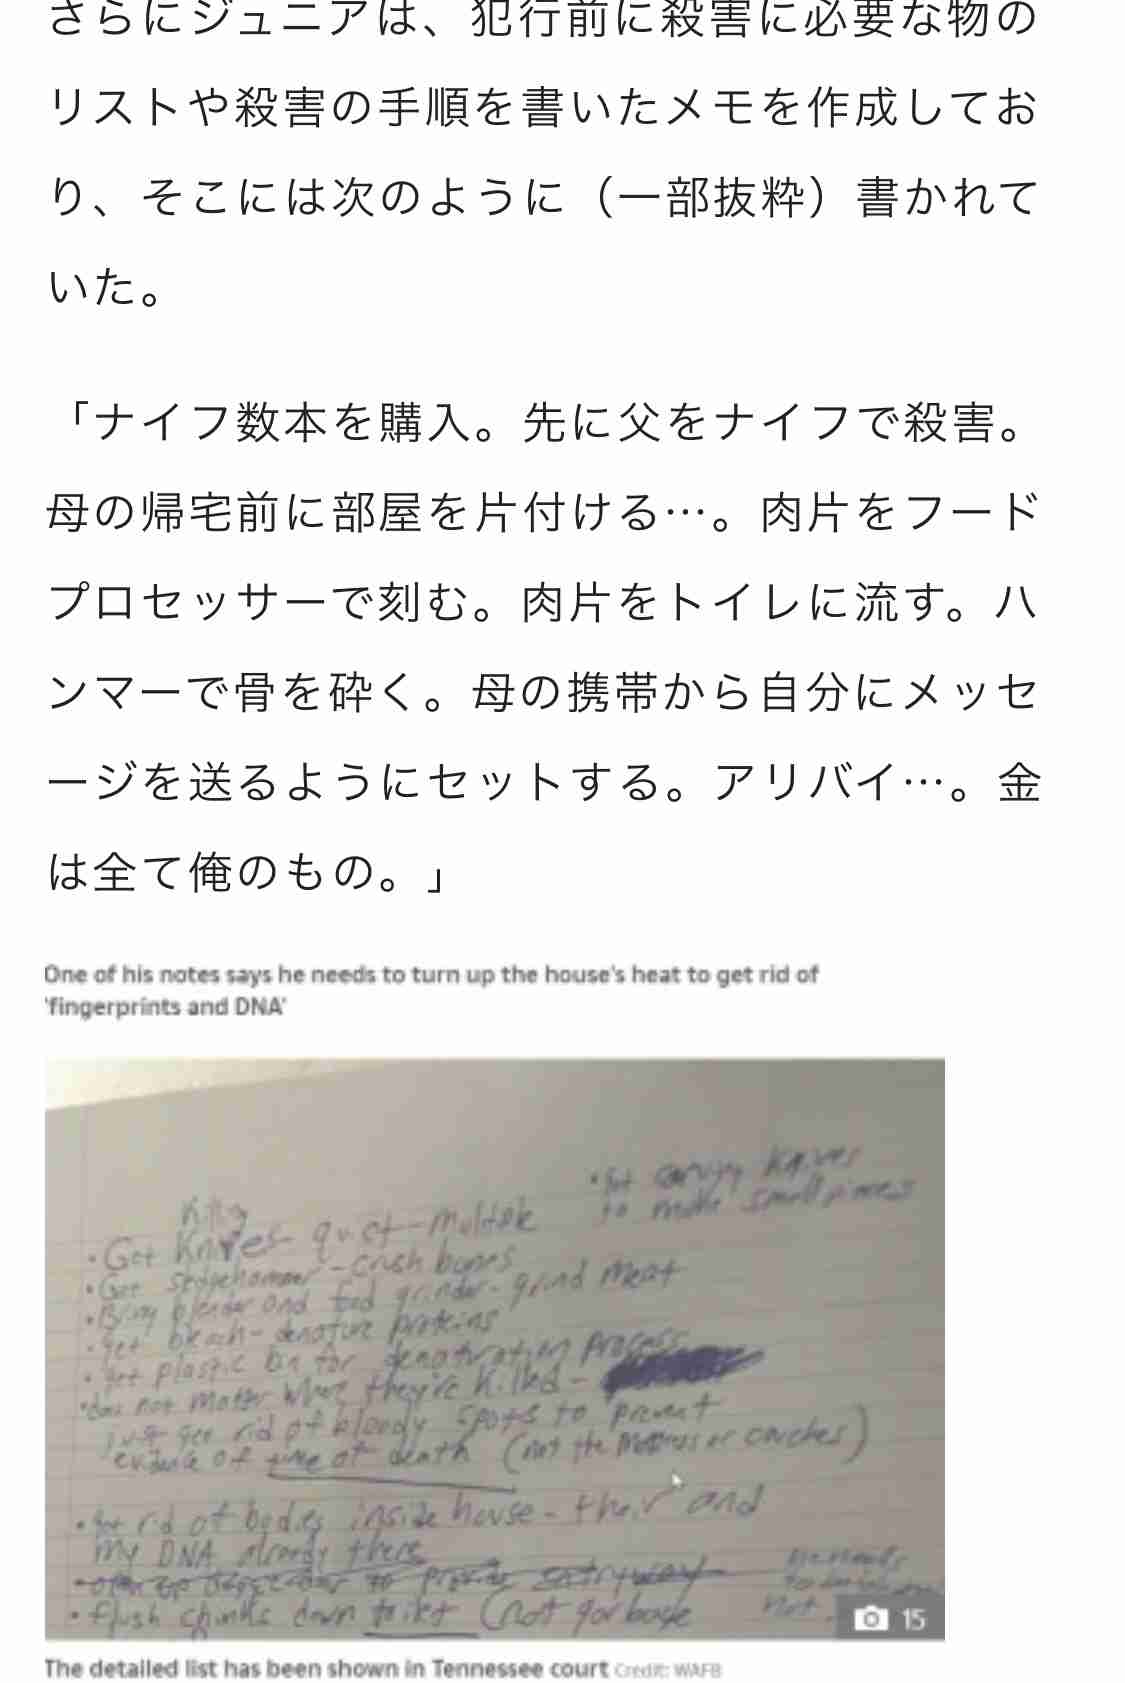 さらにジュニアは、犯行前に殺害に必要な物の
リストや殺害の手順を書いたメモを作成してお
り、そこには次のように（一部抜粋）書かれて
いた。
「ナイフ数本を購入。先に父をナイフで殺害。
母の帰宅前に部屋を片付ける…。肉片をフード
プロセッサーで刻む。肉片をトイレに流す。ハ
ンマーで骨を砕く。母の携帯から自分にメッセ
ージを送るようにセットする。アリバイ…。金
は全て俺のもの。」
One of his notes says he needs to turn up the house's heat to get rid of
'fingerprints and DNA'
carving knives
to make small pieces
• Get Knives - quiet - multiple
• Get sledgehammer - crush bones
• Bring blender and food grinder - grind meat
• get bleach - denature proteins
• get plastic bin for denaturation process
• does not matter where they're killed -
just get rid of bloody spots to prevent
evidence of time of death (not the mattress or couches)
• get rid of bodies inside house - their and
my DNA already there
to provide entryway
• flush chunks down toilet (not garbage
not
15
The detailed list has been shown in Tennessee court Credit: WAFB